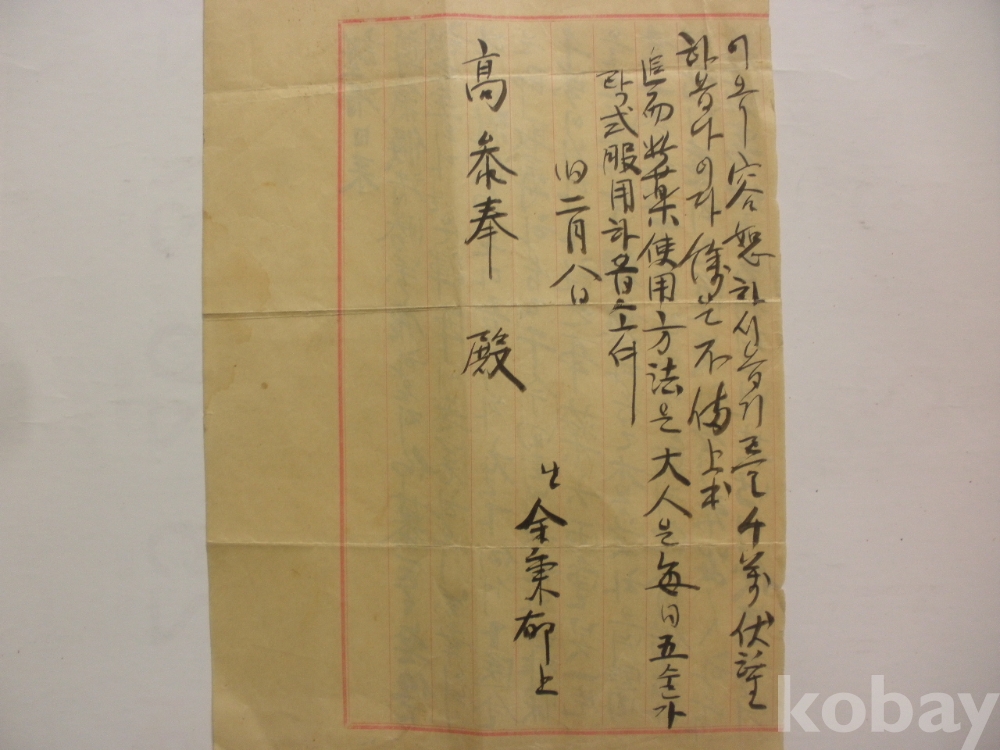 이오니 容恕하시옵기를 千萬伏望
하옵나이다 餘는 不備上書
追而 此藥使用方法은 大人은 每日五숟가
락式服用하옵소서
旧二月八日
高參奉 殿
生 余秉郁 上
kobay